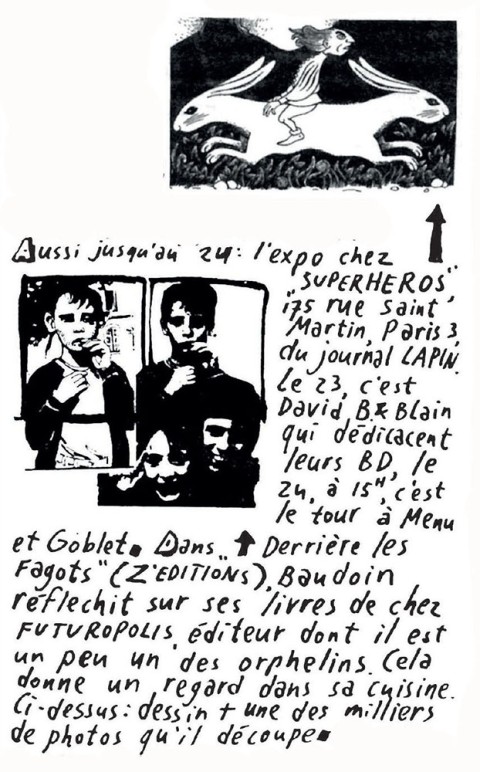 Aussi jusqu'au 24: l'expo chez
"SUPERHEROS",
175 rue Saint
Martin, Paris 3,
du journal LAPIN.
Le 23, c'est
David B & Blain
qui dédicacent
leurs BD, le
24, à 15H, c'est
le tour à Menu
et Goblet. Dans "Derrière les
Fagots" (Z'EDITIONS), Baudoin
réflechit sur ses livres de chez
FUTUROPOLIS, éditeur dont il est
un peu un des orphelins. Cela
donne un regard dans sa cuisine.
Ci-dessus: dessin + une des milliers
de photos qu'il découpe